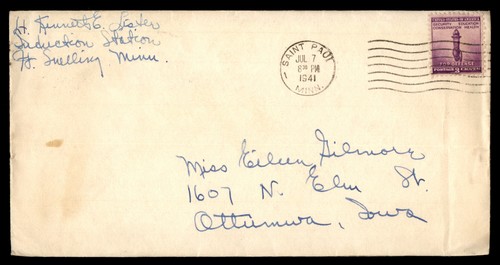 H. Kenneth E.
Induction Station
Ft Snelling, Minn.
SAINT PAUL
JUL 7
8 PM
1941
MINN.
UNITED STATES OF AMERICA
SECURITY EDUCATION
CONSERVATION HEALTH
FOR DEFENSE
POSTAGE 3 CENTS
Miss Eileen Gilmore
1607 N. Elm St.
Ottumwa, Iowa